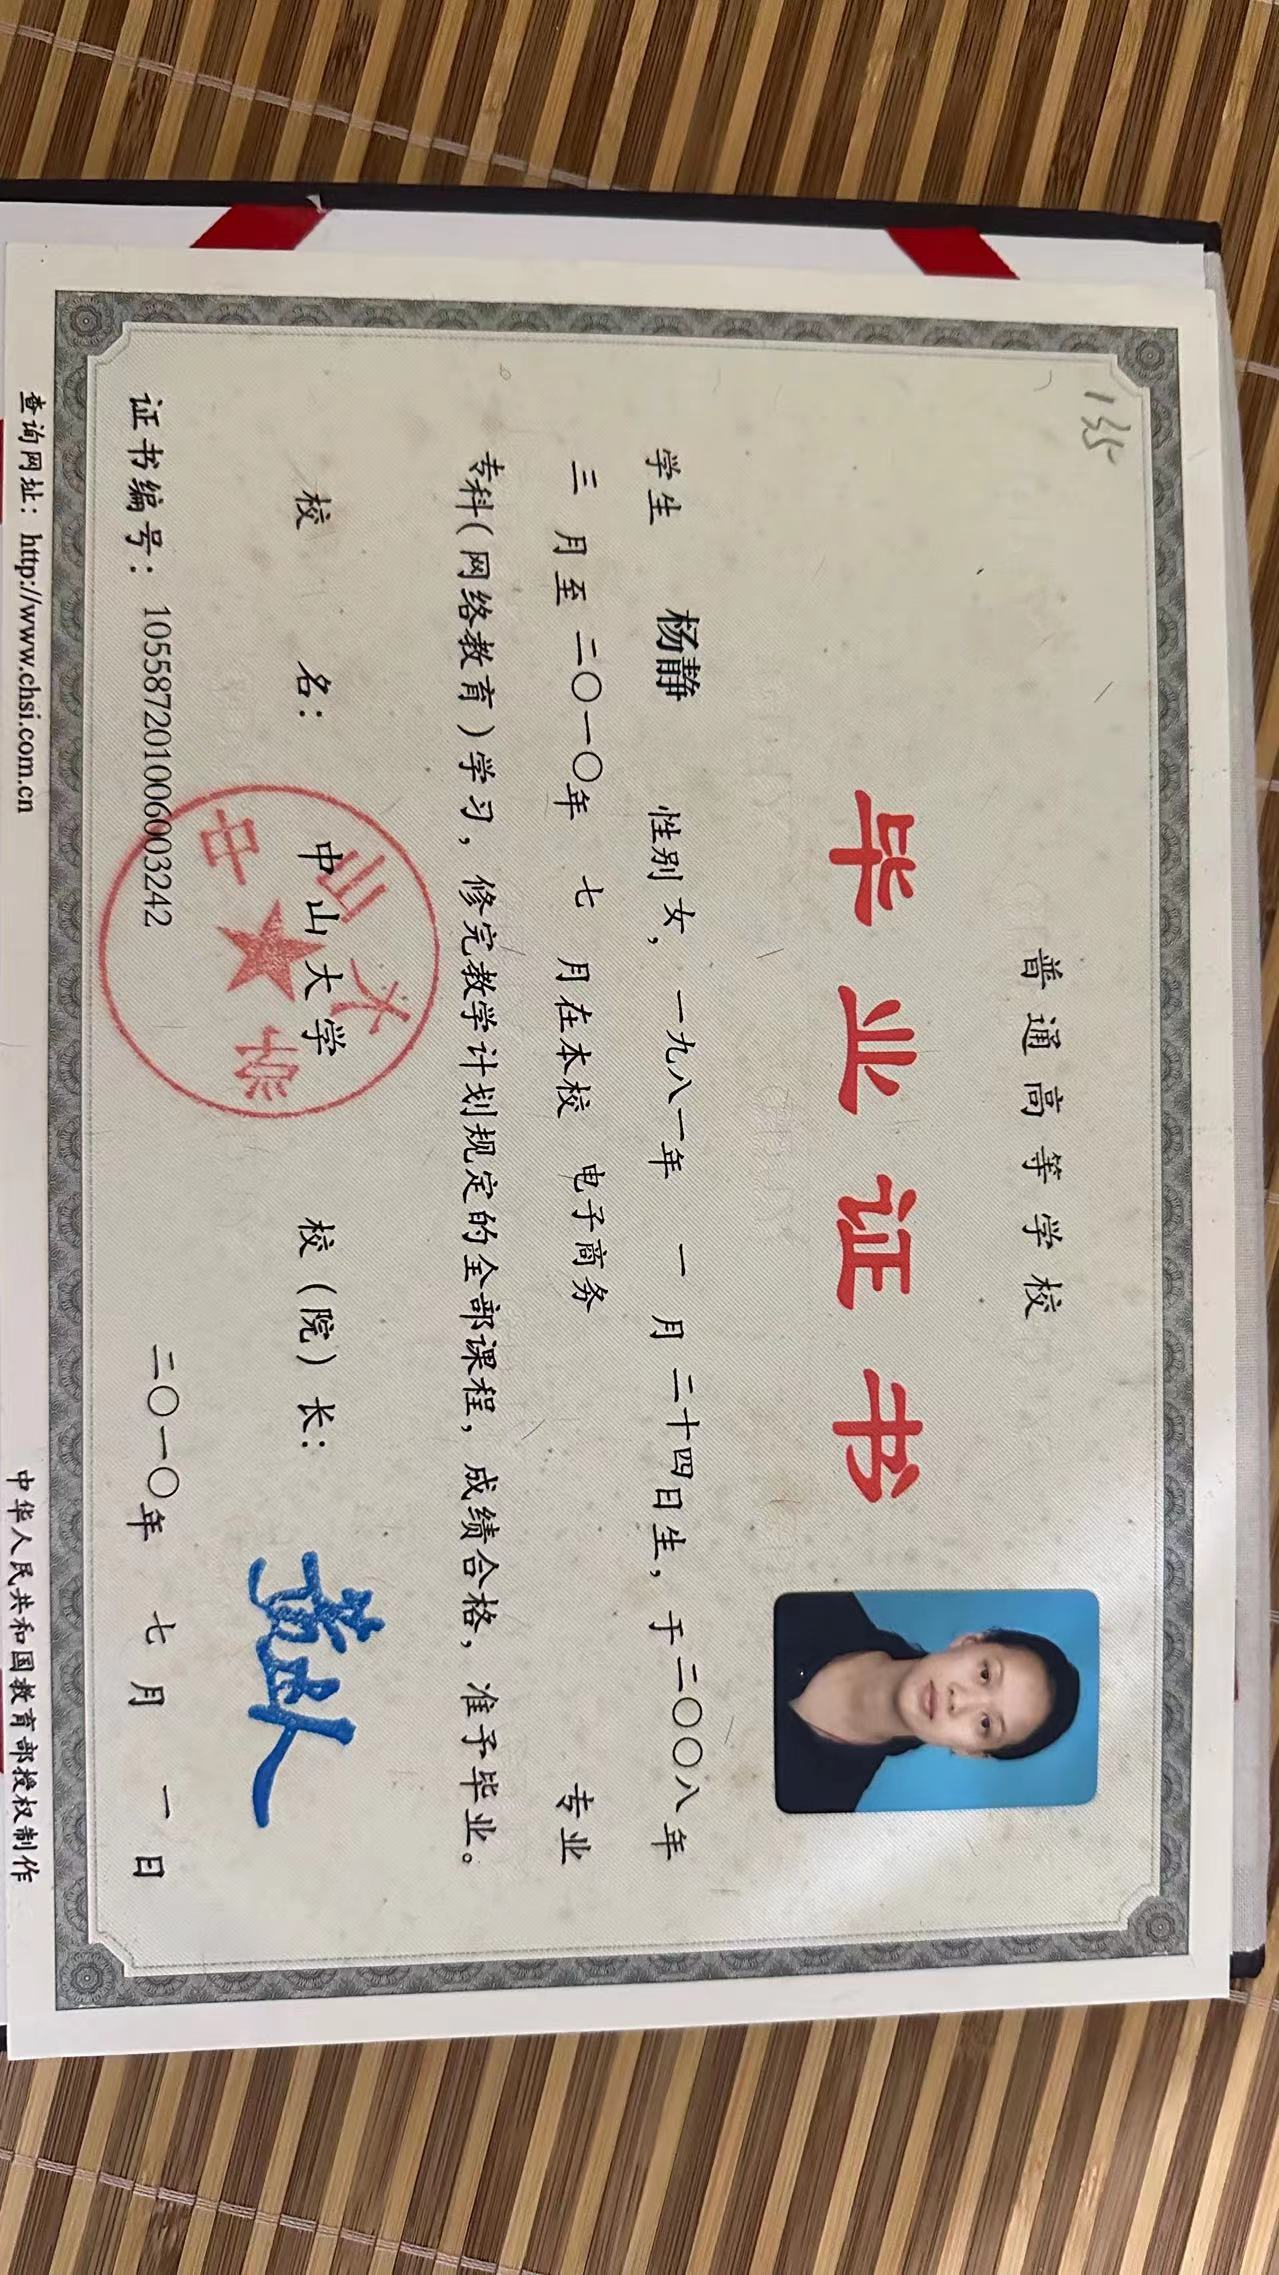 135
普通高等学校
毕业证书
学生 杨静 性别女，一九八一年 一 月 二十四日生，于二〇〇八年
三 月至 二〇一〇年 七 月在本校 电子商务 专业
专科（网络教育）学习，修完教学计划规定的全部课程，成绩合格，准予毕业。
校 名： 中山大学 校（院）长：
中山大学
证书编号：105587201006003242 二〇一〇年 七 月 一 日
查询网址：http://www.chsi.com.cn 中华人民共和国教育部授权制作